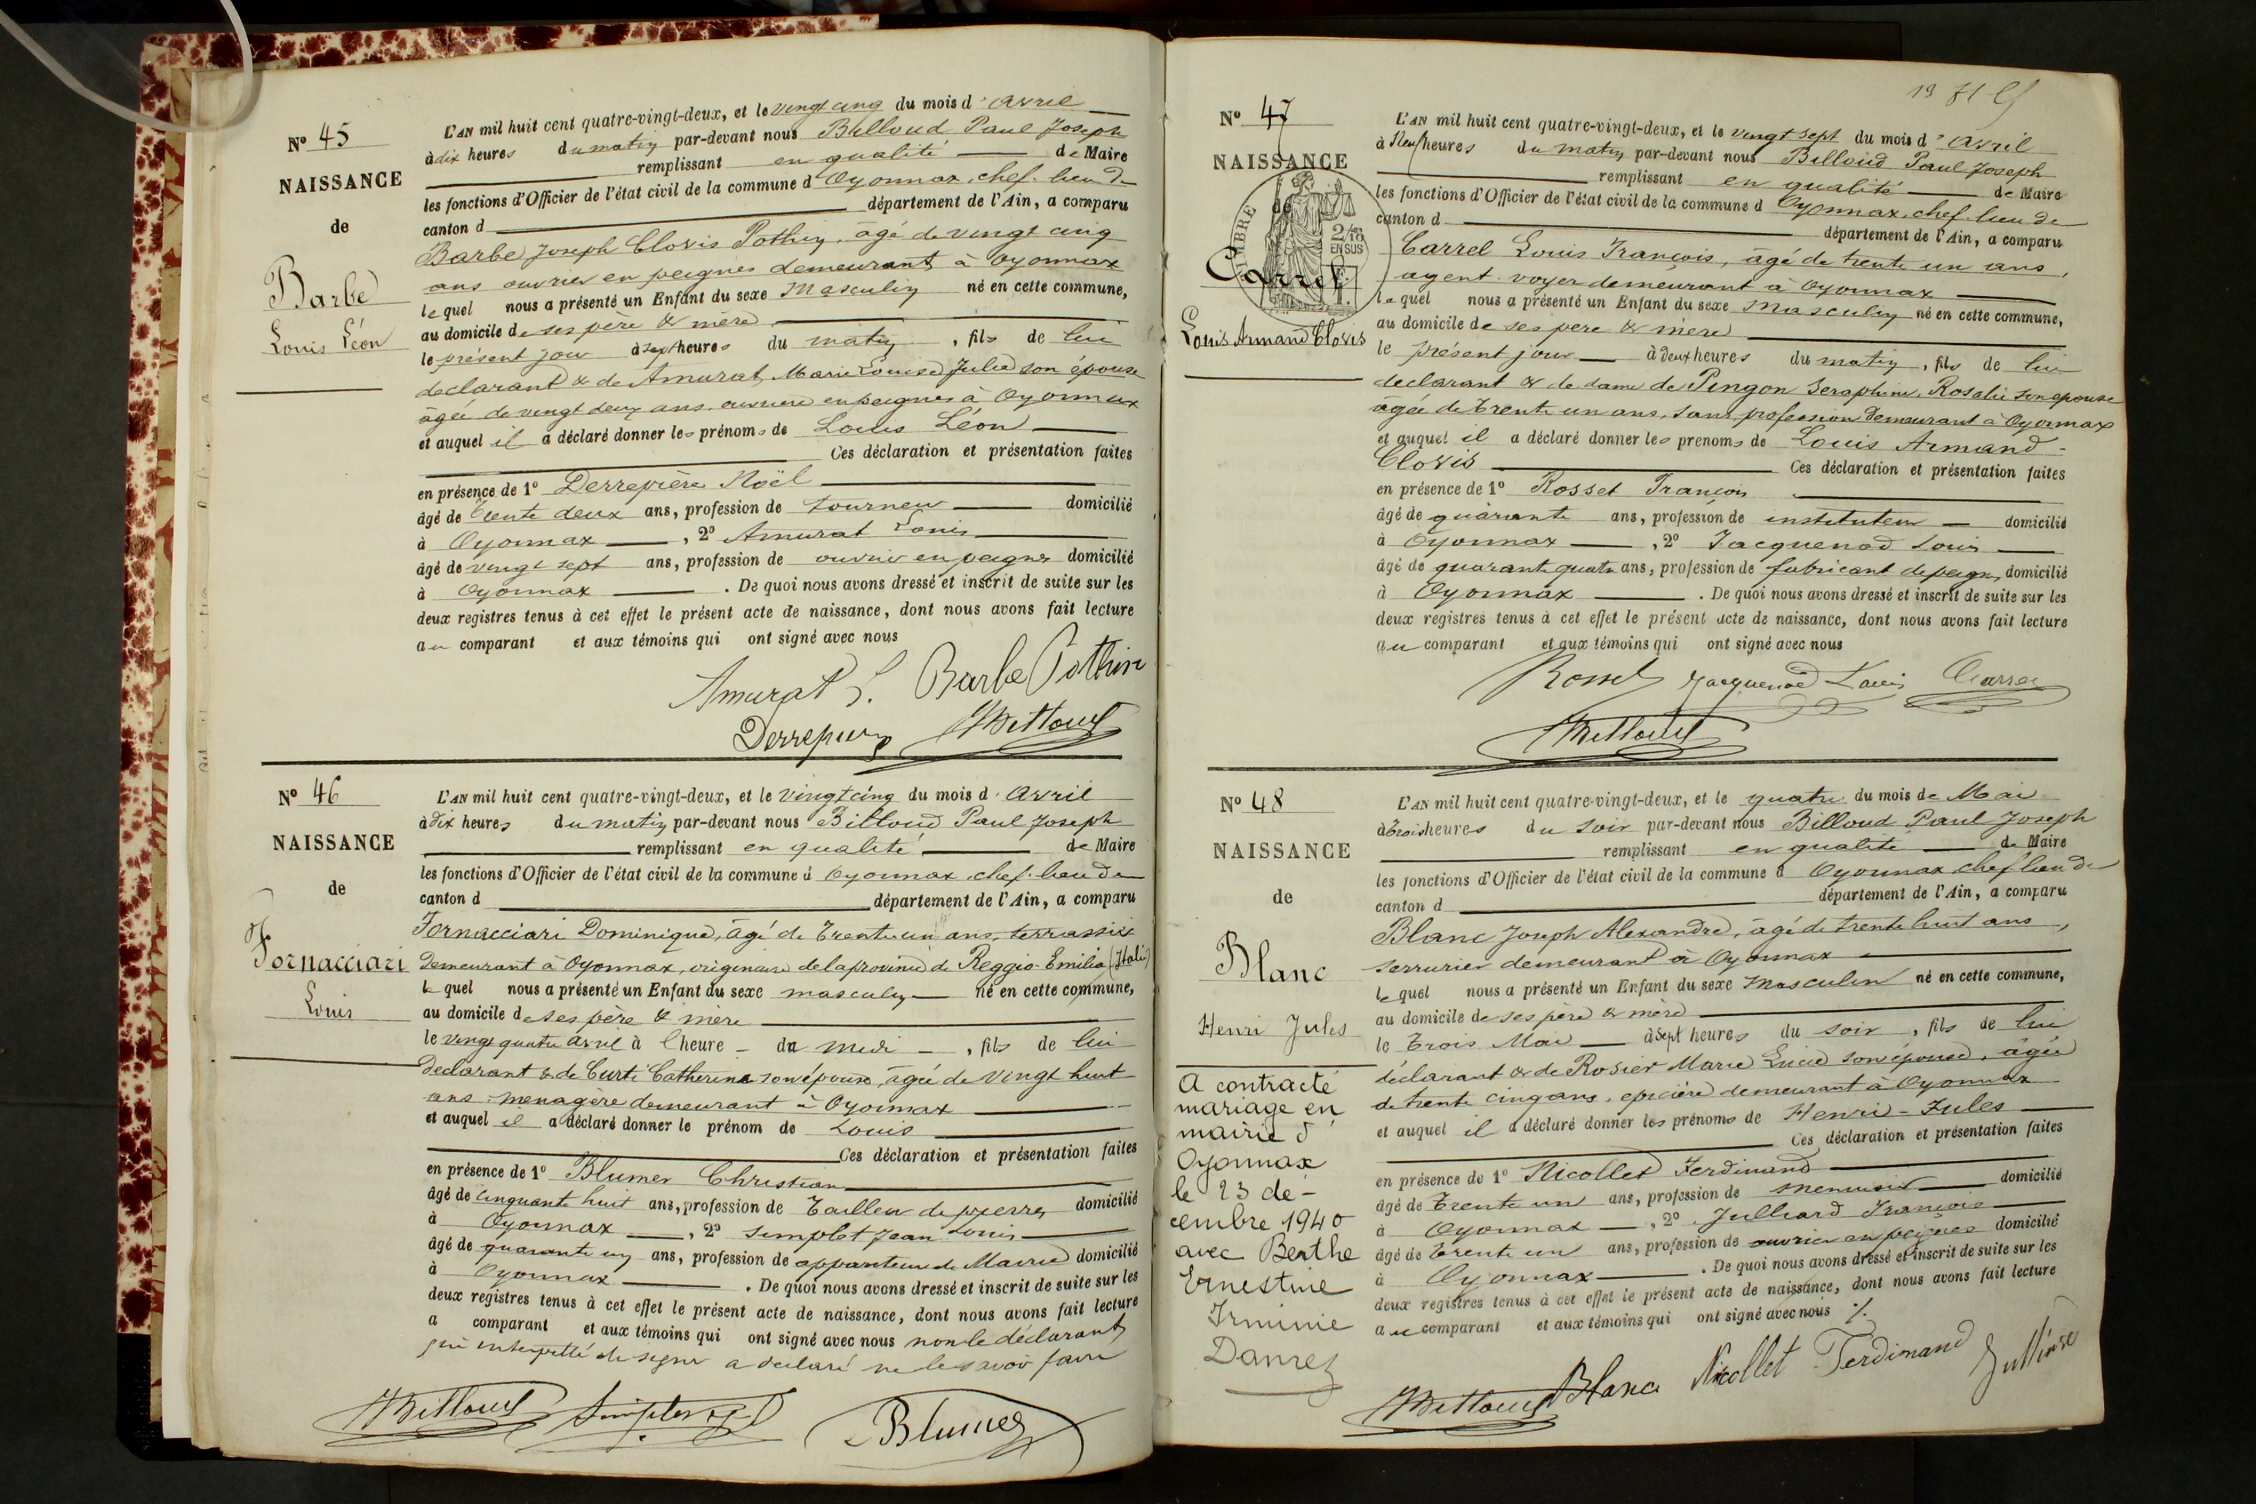 Nº 45
NAISSANCE
de
Barbe
Louis Léon
L'AN mil huit cent quatre-vingt-deux, et le vingt cinq du mois d'avril
à dix heures du matin par-devant nous Billoud Paul Joseph
remplissant en qualité de Maire
les fonctions d'Officier de l'état civil de la commune d Oyonnax, chef-lieu de
canton d département de l'Ain, a comparu
Barbe Joseph Clovis Pothin, âgé de vingt cinq
ans ouvrier en peignes demeurant à Oyonnax
lequel nous a présenté un Enfant du sexe Masculin né en cette commune,
au domicile de ses père & mère
le présent jour à sept heures du matin, fils de lui
déclarant & de Amurat Marie Louise Julie son épouse
âgée de vingt deux ans, ouvrière en peignes à Oyonnax
et auquel il a déclaré donner les prénoms de Louis Léon
Ces déclaration et présentation faites
en présence de 1º Derrepière Noël
âgé de trente deux ans, profession de tourneur domicilié
à Oyonnax, 2º Amurat Louis
âgé de vingt sept ans, profession de ouvrier en peignes domicilié
à Oyonnax. De quoi nous avons dressé et inscrit de suite sur les
deux registres tenus à cet effet le présent acte de naissance, dont nous avons fait lecture
au comparant et aux témoins qui ont signé avec nous
Amurat L. Barbe Pothin
Derrepierre Billoud
Nº 46
NAISSANCE
de
Fornacciari
Louis
L'AN mil huit cent quatre-vingt-deux, et le vingt cinq du mois d'avril
à dix heures du matin par-devant nous Billoud Paul Joseph
remplissant en qualité de Maire
les fonctions d'Officier de l'état civil de la commune d Oyonnax, chef-lieu de
canton d département de l'Ain, a comparu
Fornacciari Dominique, âgé de trente un ans, terrassier
demeurant à Oyonnax, originaire de la province de Reggio-Emilia (Italie)
lequel nous a présenté un Enfant du sexe masculin né en cette commune,
au domicile de ses père & mère
le vingt quatre avril à l heure du midi, fils de lui
déclarant & de Curti Catherine son épouse, âgée de vingt huit
ans ménagère demeurant à Oyonnax
et auquel il a déclaré donner le prénom de Louis
Ces déclaration et présentation faites
en présence de 1º Blumer Christian
âgé de cinquante huit ans, profession de tailleur de pierres domicilié
à Oyonnax, 2º Simplet Jean Louis
âgé de quarante un ans, profession de appariteur de Mairie domicilié
à Oyonnax. De quoi nous avons dressé et inscrit de suite sur les
deux registres tenus à cet effet le présent acte de naissance, dont nous avons fait lecture
a comparant et aux témoins qui ont signé avec nous non le déclarant
qui interpellé de signer a déclaré ne le savoir faire
Billoud Simplet Blumer
19
Nº 47
NAISSANCE
de
TIMBRE
2/10 EN SUS
Carrel
Louis Armand Clovis
L'AN mil huit cent quatre-vingt-deux, et le vingt sept du mois d'avril
à Neuf heures du matin par-devant nous Billoud Paul Joseph
remplissant en qualité de Maire
les fonctions d'Officier de l'état civil de la commune d Oyonnax, chef-lieu de
canton d département de l'Ain, a comparu
Carrel Louis François, âgé de trente un ans,
agent-voyer demeurant à Oyonnax
lequel nous a présenté un Enfant du sexe masculin né en cette commune,
au domicile de ses père & mère
le présent jour à deux heures du matin, fils de lui
déclarant & de dame de Pingon Seraphine, Rosalie son épouse
âgée de trente un ans, sans profession demeurant à Oyonnax
et auquel il a déclaré donner les prénoms de Louis Armand-
Clovis Ces déclaration et présentation faites
en présence de 1º Rosset François
âgé de quarante ans, profession de instituteur domicilié
à Oyonnax, 2º Jacquenod Louis
âgé de quarante quatre ans, profession de fabricant de peignes, domicilié
à Oyonnax. De quoi nous avons dressé et inscrit de suite sur les
deux registres tenus à cet effet le présent acte de naissance, dont nous avons fait lecture
au comparant et aux témoins qui ont signé avec nous
Rosset Jacquenod Louis Carrel
Billoud
Nº 48
NAISSANCE
de
Blanc
Henri Jules
A contracté
mariage en
mairie d'
Oyonnax
le 23 dé-
cembre 1940
avec Berthe
Ernestine
Irminie
Danrez
L'AN mil huit cent quatre-vingt-deux, et le quatre du mois de Mai
à trois heures du soir par-devant nous Billoud Paul Joseph
remplissant en qualité de Maire
les fonctions d'Officier de l'état civil de la commune d Oyonnax chef lieu de
canton d département de l'Ain, a comparu
Blanc Joseph Alexandre, âgé de trente huit ans,
serrurier demeurant à Oyonnax
lequel nous a présenté un Enfant du sexe Masculin né en cette commune,
au domicile de ses père & mère
le trois Mai à sept heures du soir, fils de lui
déclarant & de Rosier Marie Lucie son épouse, âgée
de trente cinq ans, épicière demeurant à Oyonnax
et auquel il a déclaré donner les prénoms de Henri-Jules
Ces déclaration et présentation faites
en présence de 1º Nicollet Ferdinand
âgé de trente un ans, profession de menuisier domicilié
à Oyonnax, 2º Julliard François
âgé de trente un ans, profession de ouvrier en peignes domicilié
à Oyonnax. De quoi nous avons dressé et inscrit de suite sur les
deux registres tenus à cet effet le présent acte de naissance, dont nous avons fait lecture
au comparant et aux témoins qui ont signé avec nous
Billoud Blanc Nicollet Ferdinand Julliard